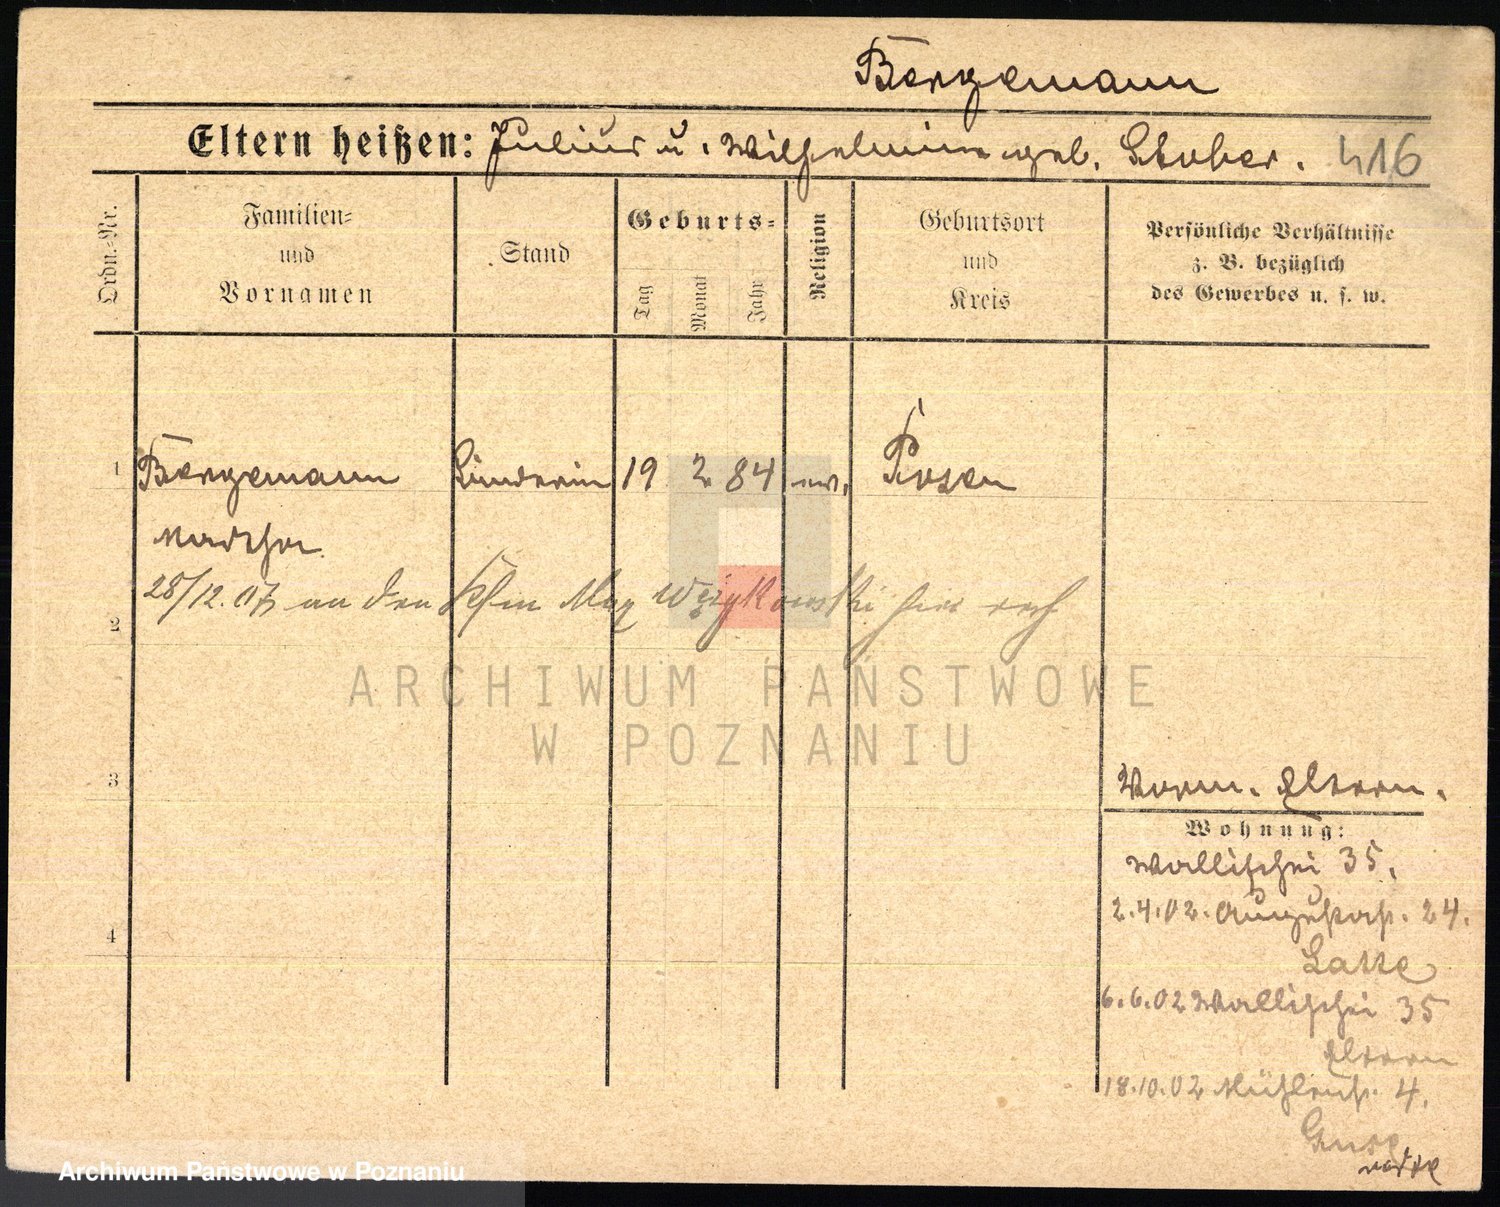 Bergemann
Eltern heißen: Julius u. Wilhelmine geb. Stober. 416
Ordn.-Nr.
Familien-
und
Vornamen
Stand
Geburts-
Tag
Monat
Jahr
Religion
Geburtsort
und
Kreis
Persönliche Verhältnisse
z. B. bezüglich
des Gewerbes u. s. w.
1 Bergemann 19 2 84 ev. Posen
Martha
28/12.07 an den Max hier verh
2
ARCHIWUM PAŃSTWOWE
W POZNANIU
3
Vorm. Eltern.
Wohnung:
Wallischei 35.
2.4.02. Augustastr. 24.
4
6.6.02 Wallischei 35
Eltern
18.10.02 Mühlenstr. 4.
Archiwum Państwowe w Poznaniu